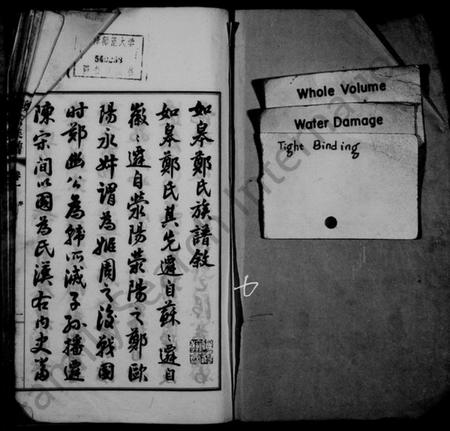 如皋鄭氏族譜敘
如皋鄭氏其先遷自蘇〻遷自
徽〻遷自滎陽滎陽之鄭歐
陽永叔謂為姬周之後戰國
時鄭幽公為韓所滅子孫播遷
陳宋間以國為氏漢右內史當
560268
Whole Volume
Water Damage
Tight Binding